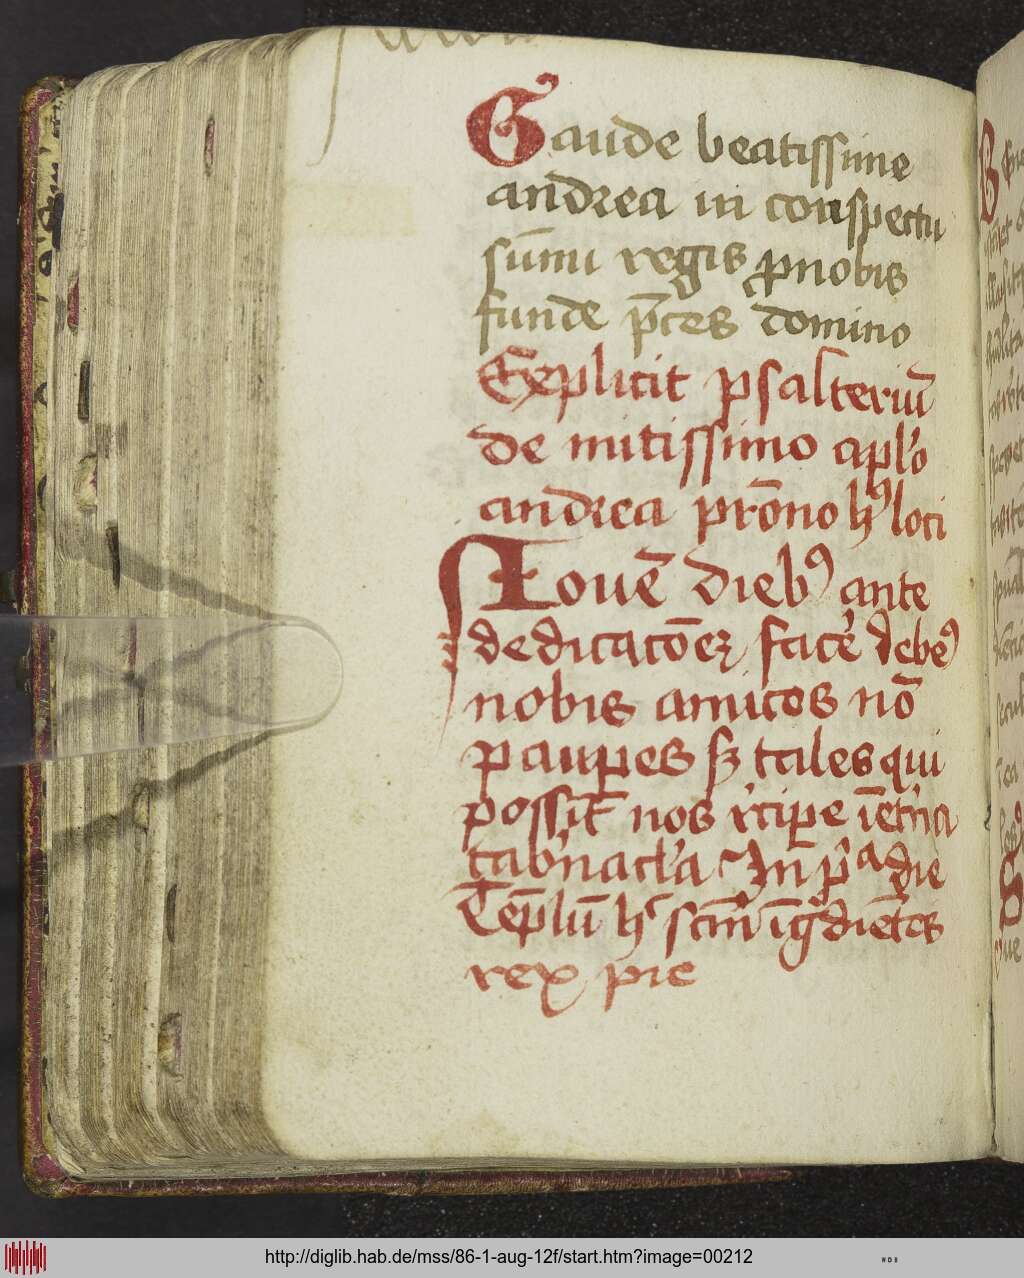 Gaude beatissime
andrea in conspectu
sūmi regis ꝓ nobis
funde p̄ces domino
Explicit psalteriū
de mitissimo apl'o
andrea pr̄ono hꝰ loci
Nouē diebꝰ ante
dedicacōeꝫ face' debeꝰ
nobis amicos nō
pauꝑes sꝫ tales qui
possīt nos r'ciꝑe ī et'na
tab'nac'la In pª die
Tēplū hᶜ scm̄ īg'diēt's
rex pie
http://diglib.hab.de/mss/86-1-aug-12f/start.htm?image=00212